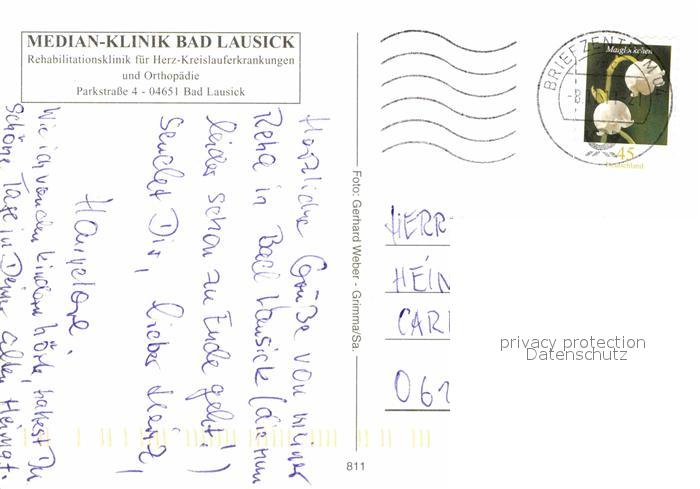 MEDIAN-KLINIK BAD LAUSICK
Rehabilitationsklinik für Herz-Kreislauferkrankungen
und Orthopädie
Parkstraße 4 - 04651 Bad Lausick
Herzliche Grüße von meiner
Reha in Bad Lausick (die nun
leider schon zu Ende geht!)
sendet Dir, lieber Heinz,
Hannelore.
Wie ich von den Kindern hörte, hattest Du
schöne Tage in Deiner alten Heimat.
Foto: Gerhard Weber - Grimma/Sa.
811
BRIEFZENTRUM
Maiglöckchen
45
Deutschland
HERR
HEIN
CARL
061
privacy protection
Datenschutz